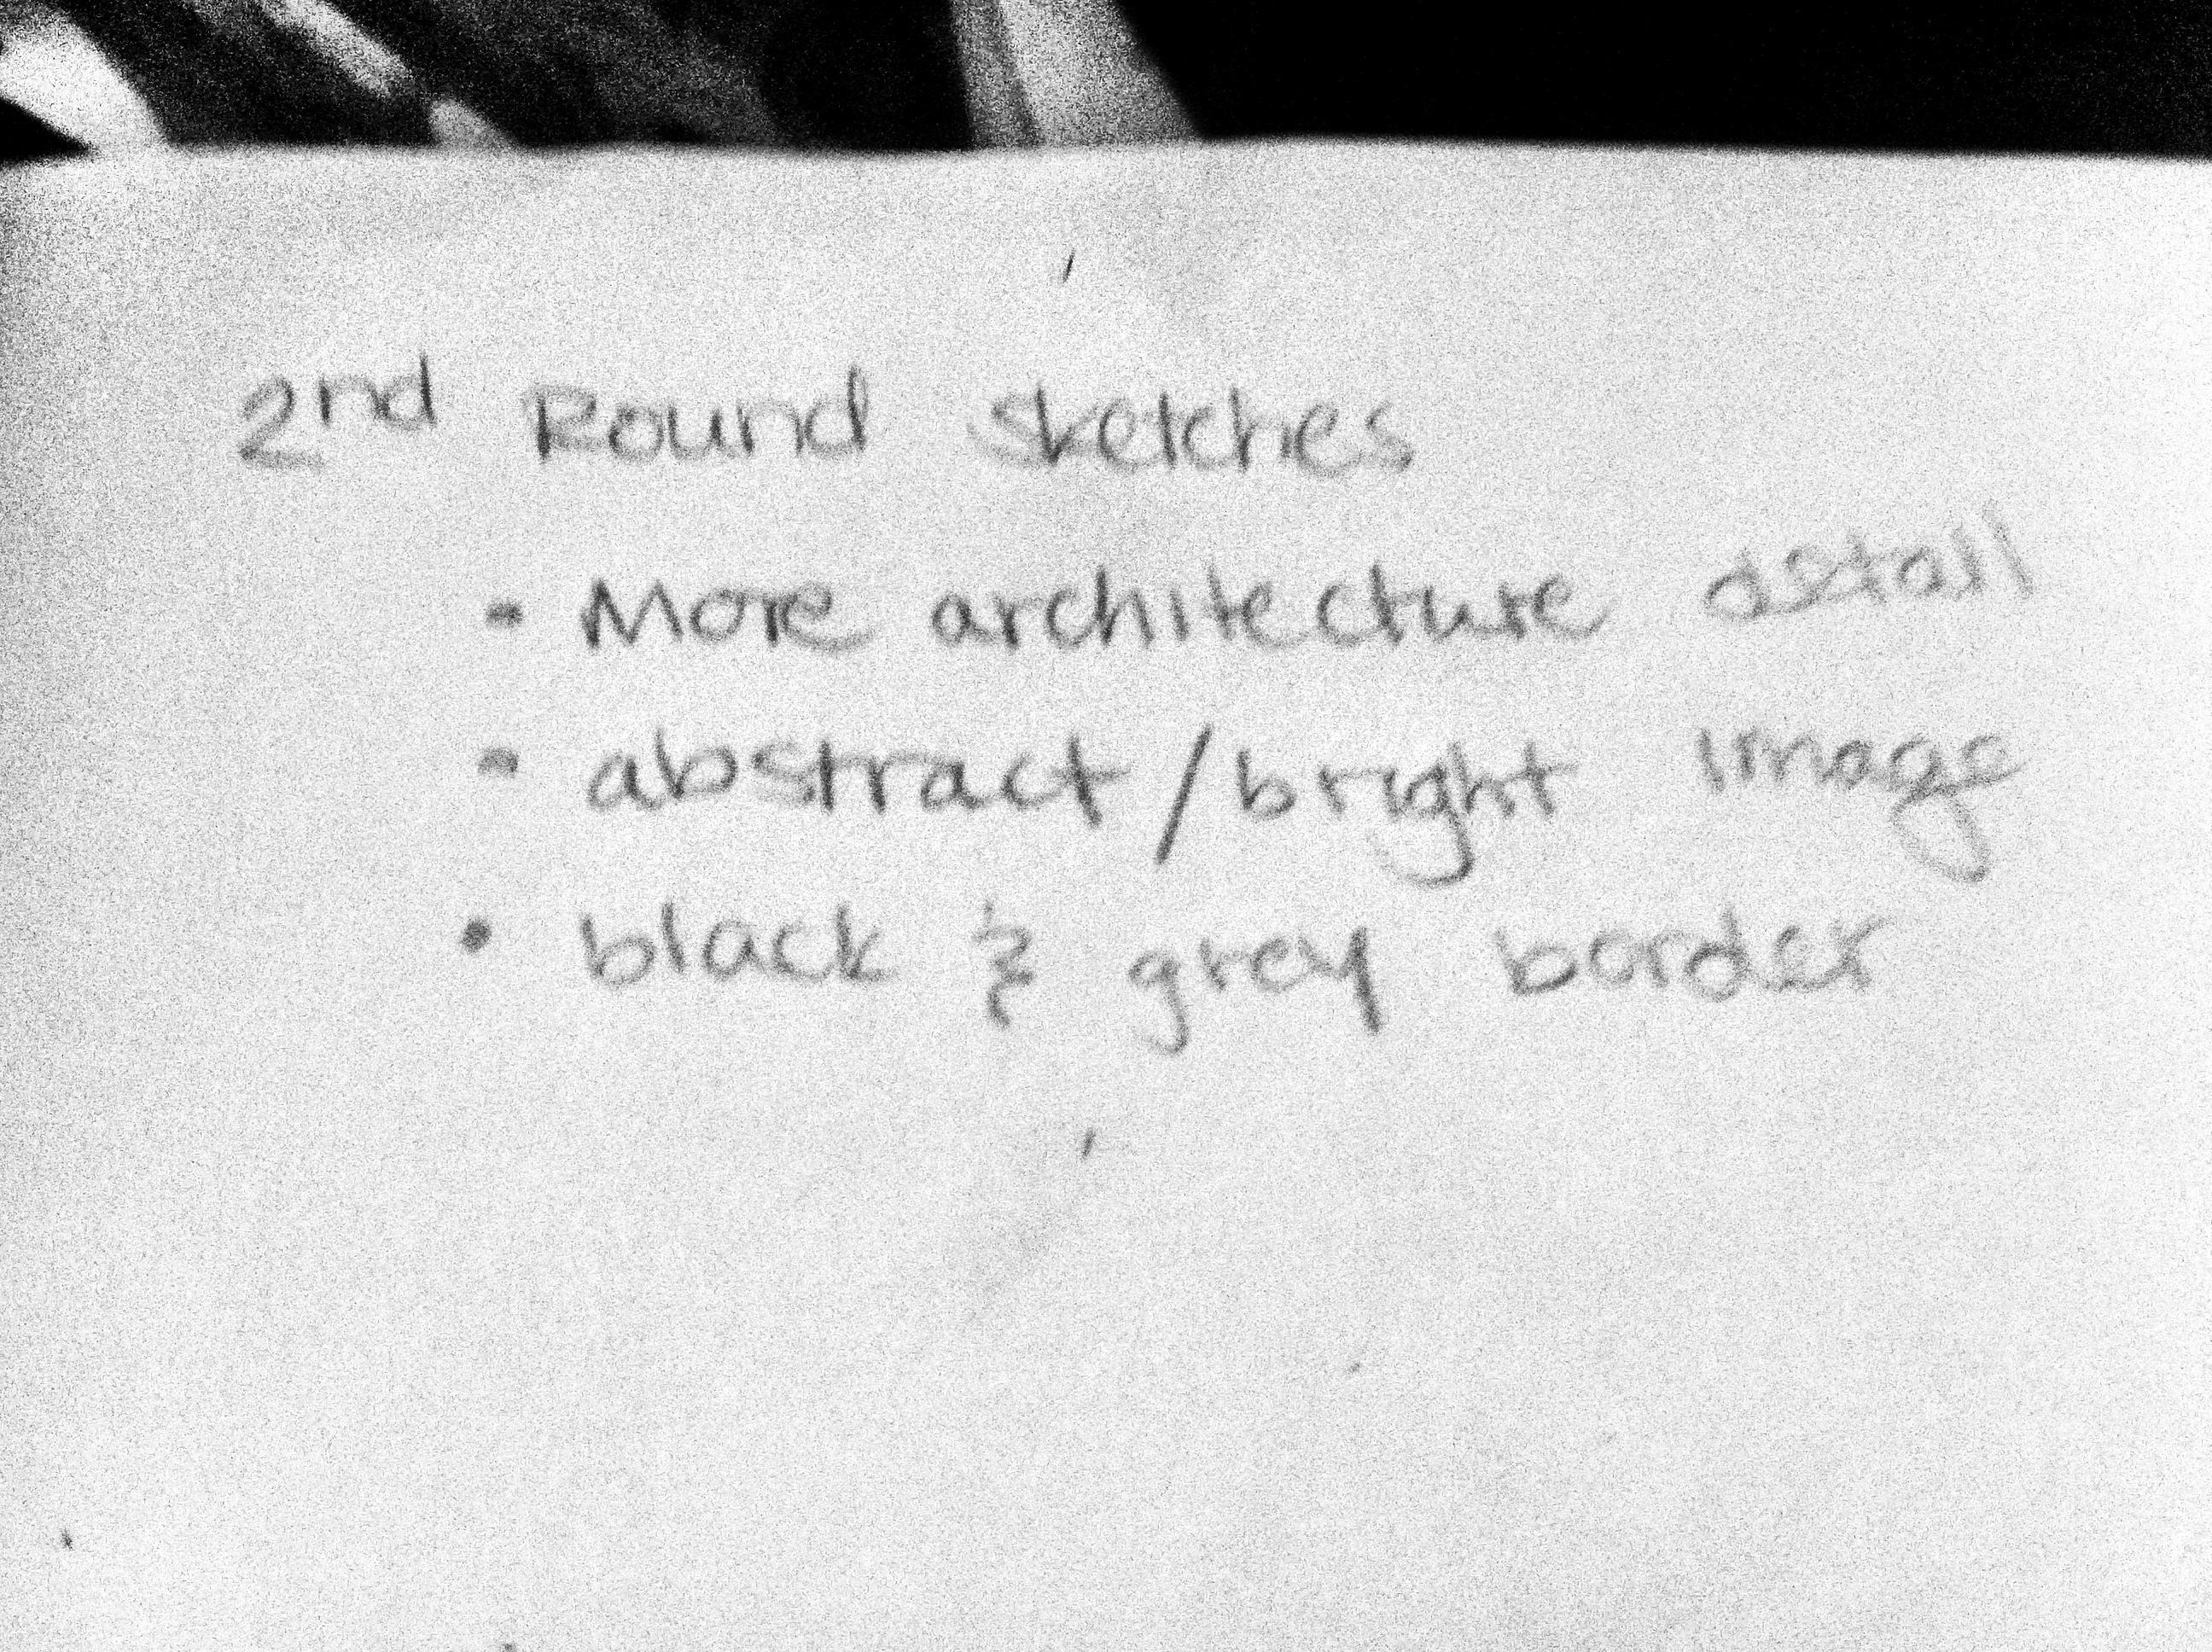 2nd Round sketches
• More architecture detail
• abstract/bright image
• black & grey border